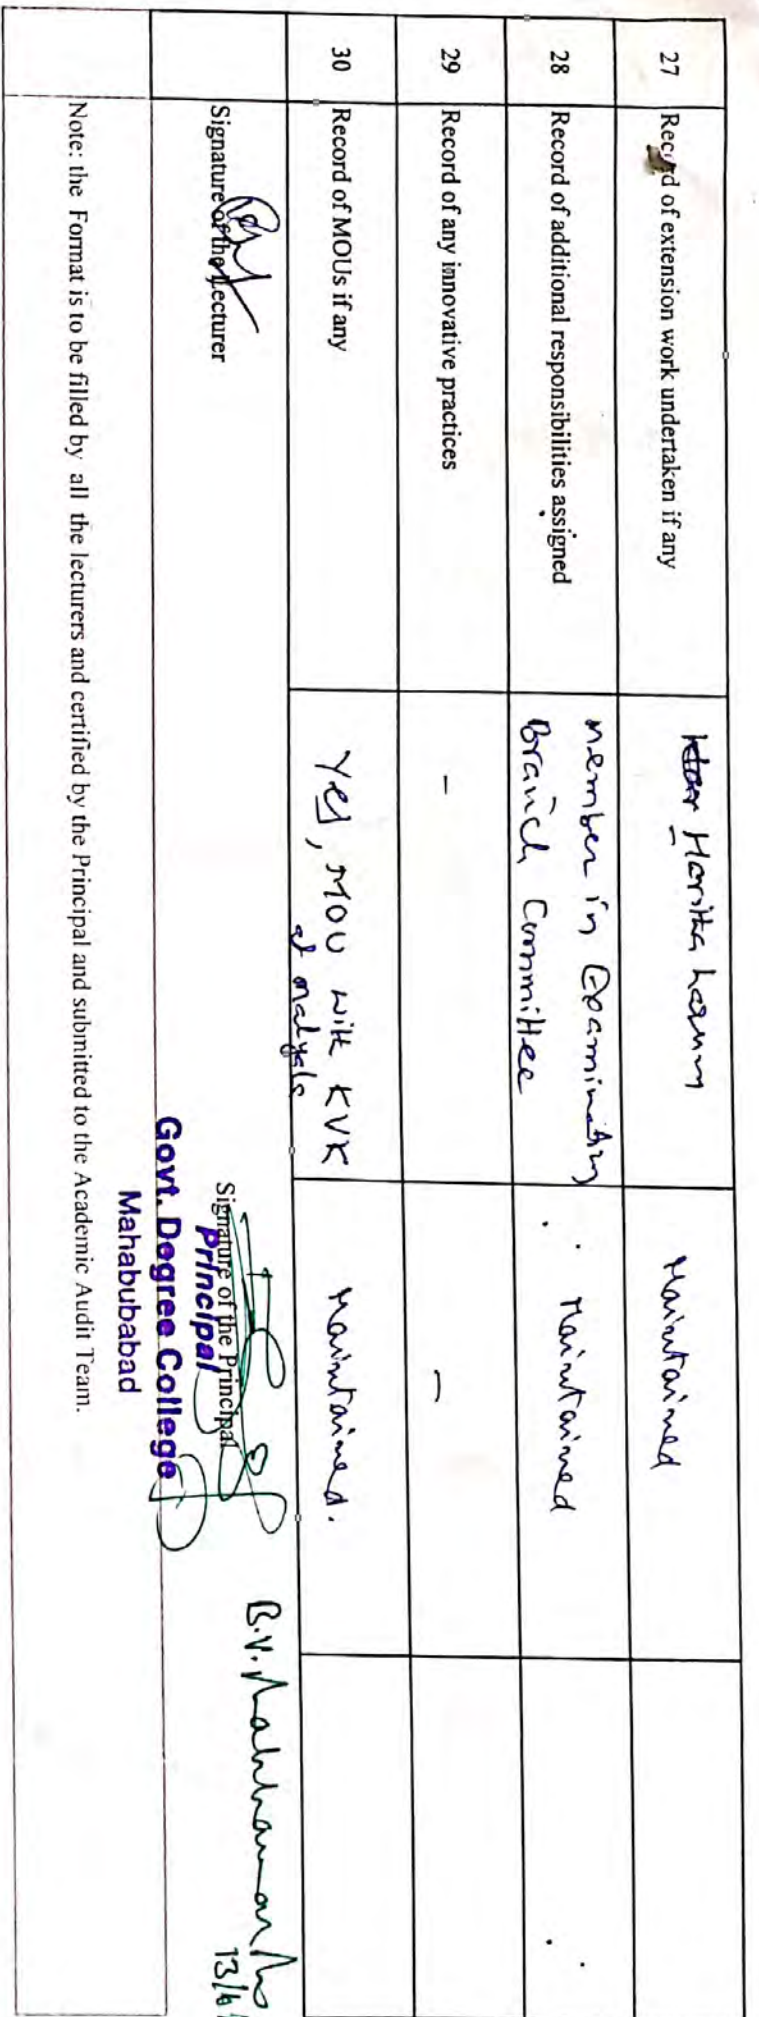 27 Record of extension work undertaken if any Haritha haram Maintained
28 Record of additional responsibilities assigned member in Examination Maintained
Branch Committee
29 Record of any innovative practices - -
30 Record of MOUs if any Yes, MOU with KVK Maintained.
at malyala
Signature of the Lecturer Signature of the Principal B.V.
Principal 13/
Govt. Degree College
Mahabubabad
Note: the Format is to be filled by all the lecturers and certified by the Principal and submitted to the Academic Audit Team.